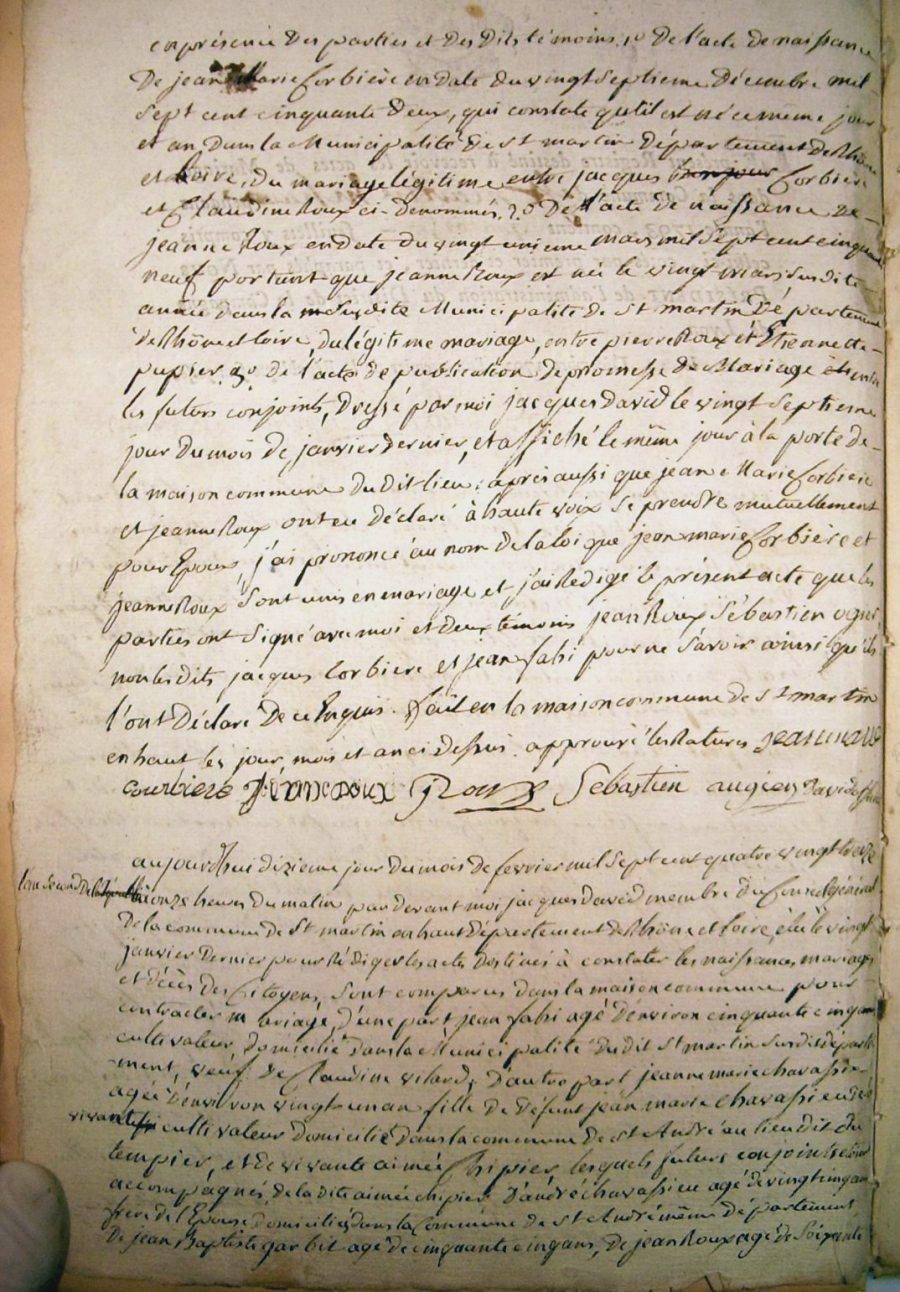 en présence des parties et des dits témoins, 1º de l'acte de naissance
De jean Marie Corbière en date du vingt septieme décembre mil
sept cent cinquante deux, qui constate qu'il est né ce meme jour
et an, dans la Municipalité de st martin département de Rhône
et Loire, du mariage légitime entre jacques Corbière
et Claudine Roux ci-denommés, 2º De l'acte de naissance de
jeanne Roux en date du vingt unieme mars mil sept cent cinquante
neuf portant que jeanne Roux est née le vingt mars susdite
année dans la susdite Municipalité de st martin Département
de Rhône et loire, du légitime mariage, entre pierre Roux et Etiennette
pupier, 3º de l'acte de publication de promesse de Mariage entre
les futurs conjoints, dressé par moi jacques David le vingt septieme
jour du mois de janvier dernier, et affiché le même jour à la porte de
la maison commune du dit lieu; après aussi que jean Marie Corbiere
et jeanne Roux ont eu déclaré à haute voix se prendre mutuellement
pour Epoux, j'ai prononcé au nom de la loi que jean marie Corbière et
jeanne Roux sont unis en mariage et j'ai Rédigé le présent acte que les
parties ont signé avec moi et deux témoins jean Roux Sébastien ogier
non les dits jacques Corbiere et jean fahi pour ne savoir ainsi qu'ils
l'ont déclaré de ce Enquis. fait en la maison commune de st martin
en haut les jour, mois et an ci dessus. approuvé les Ratures jean marie
courbiere jeane roux Roux Sebastien augier David
aujourd'hui dixieme jour du mois de fevrier mil sept cent quatre vingt treize
l'an second de la à onze heures du matin par devant moi jacques david membre du Conseil général
De la commune de St martin en haut département de Rhône et Loire, élu le vingt
janvier dernier pour Rédiger les actes destinés à constater les naissances, mariages
et décès des Citoyens, sont comparus dans la maison commune pour
contracter mariage, d'une part jean fahi agé d'environ cinquante cinq ans
cultivateur, domicilié dans la Municipalité du dit St martin susdit départe
ment, veuf de Claudine vilard; d'autre part jeanne marie chavassieu
agée d'environ vingt un an fille de défunt jean marie chavassieu
vivant cultivateur domicilié dans la commune de st André au lieu dit du
tempier, et de vivante aimée Chipier lesquels futurs conjoints étoient
accompagnés, de la dite aimée chipier, D'andré chavassieu agé de vingt cinq ans
frere de l'Epouse domiciliés dans la Commune de st André même département,
De jean Baptiste garbit agé de cinquante cinq ans, de jean Roux agé de Soixante